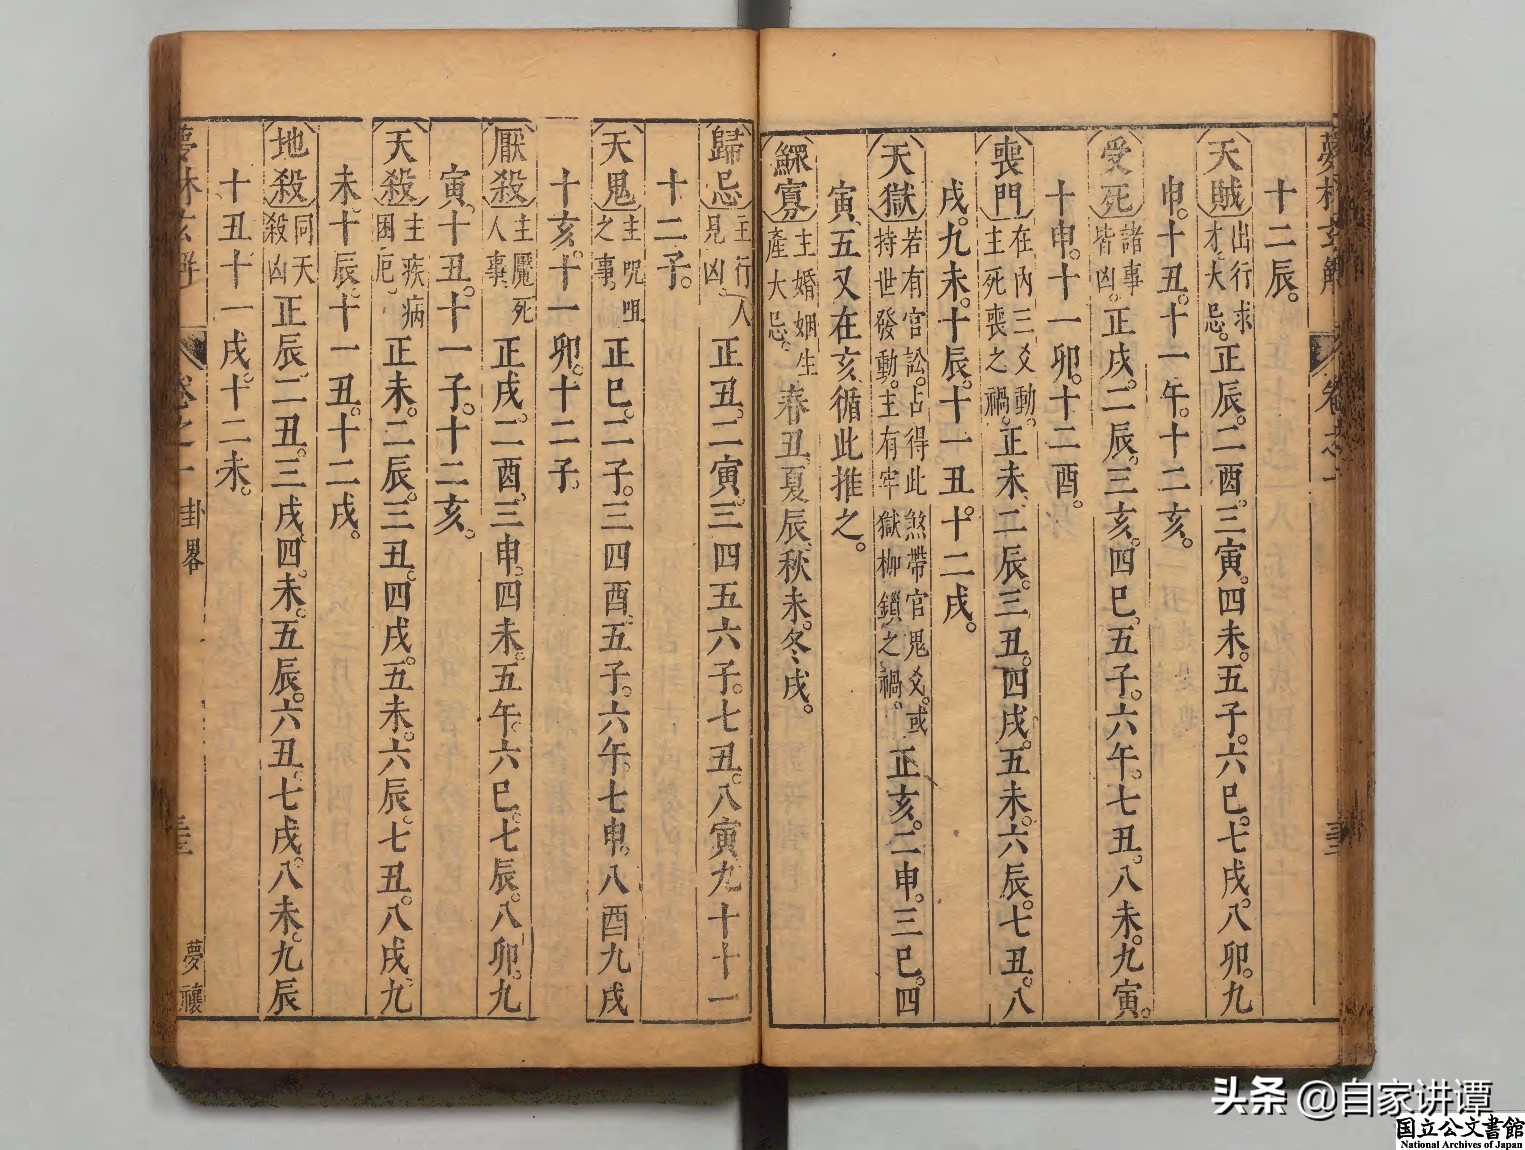 夢林玄解 卷之一
十二辰。
天賊 出行求才大忌。 正辰。二酉。三寅。四未。五子。六巳。七戌。八卯。九
申。十丑。十一午。十二亥。
受死 諸事皆凶。 正戌。二辰。三亥。四巳。五子。六午。七丑。八未。九寅。
十申。十一卯。十二酉。
喪門 在內三爻動。主死喪之禍。 正未、二辰。三丑。四戌。五未。六辰。七丑。八
戌。九未。十辰。十一丑。十二戌。
天獄 若有官訟。占得此煞帶官鬼爻。或持世發動。主有牢獄枷鎖之禍。 正亥。二申。三巳。四
寅、五又在亥循此推之。
鰥寡 主婚姻生產大忌。 春丑。夏辰、秋未。冬戌。
歸忌 主行人見凶、 正丑。二寅。三四五六子。七丑。八寅九十十一
十二子。
天鬼 主咒咀之事、 正巳。二子。三四酉、五子。六午。七申。八酉九戌
十亥。十一卯。十二子。
厭殺 主魘死人事、 正戌。二酉。三申。四未。五午。六巳。七辰。八卯。九
寅、十丑。十一子。十二亥。
天殺 主疾病困厄、 正未。二辰。三丑。四戌。五未。六辰。七丑。八戌。九
未、十辰、十一丑。十二戌。
地殺 同天殺凶 正辰。二丑。三戌、四未。五辰。六丑、七戌。八未。九辰
十丑十一戌。十二未。
夢林玄解 卷之一 卦畧 夢禳
头条 @自家讲谭
国立公文書館
National Archives of Japan